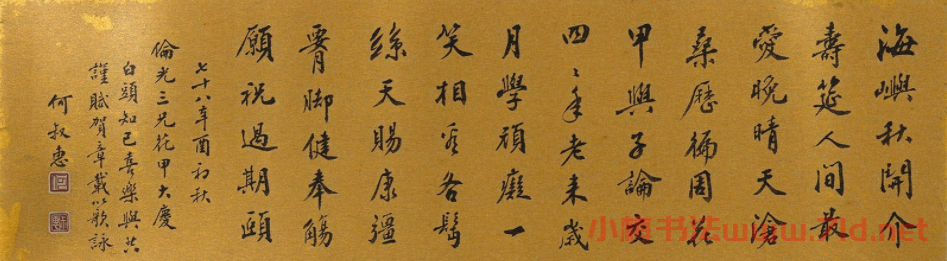 海嶼秋開介
壽筵人間最
愛晚晴天滄
桑歷徧周花
甲與子論交
四〻年老来歲
月學頑癡一
笑相看各髩
絲天賜康彊
腰脚健奉觴
願祝過期頤
七十八辛酉初秋
倫光三兄花甲大慶
白頭知己喜樂與共
謹賦賀章載以歌詠
何叔惠
书法www.7ld.net